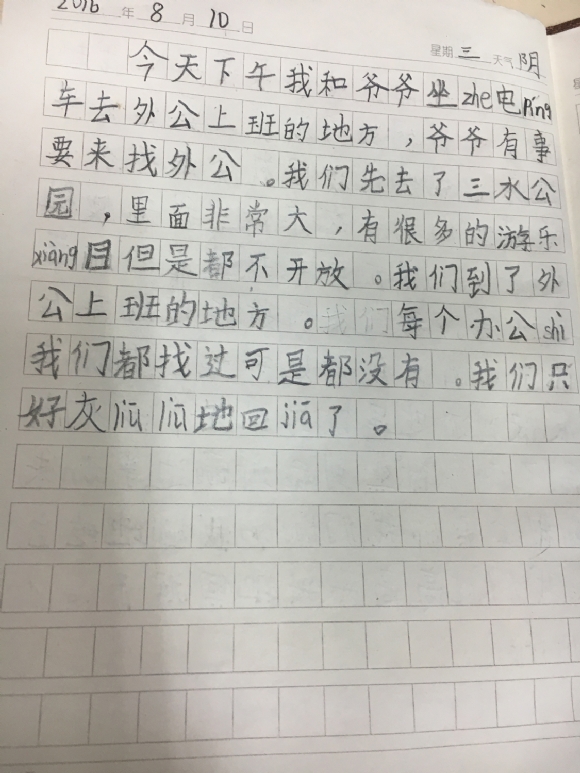 2016年8月10日 星期三 天气阴
今天下午我和爷爷坐zhe电píng
车去外公上班的地方，爷爷有事
要来找外公。我们先去了三水公
园，里面非常大，有很多的游乐
xiàng目但是都不开放。我们到了外
公上班的地方。我们每个办公shì
我们都找过可是都没有。我们只
好灰liū liū地回jiā了。